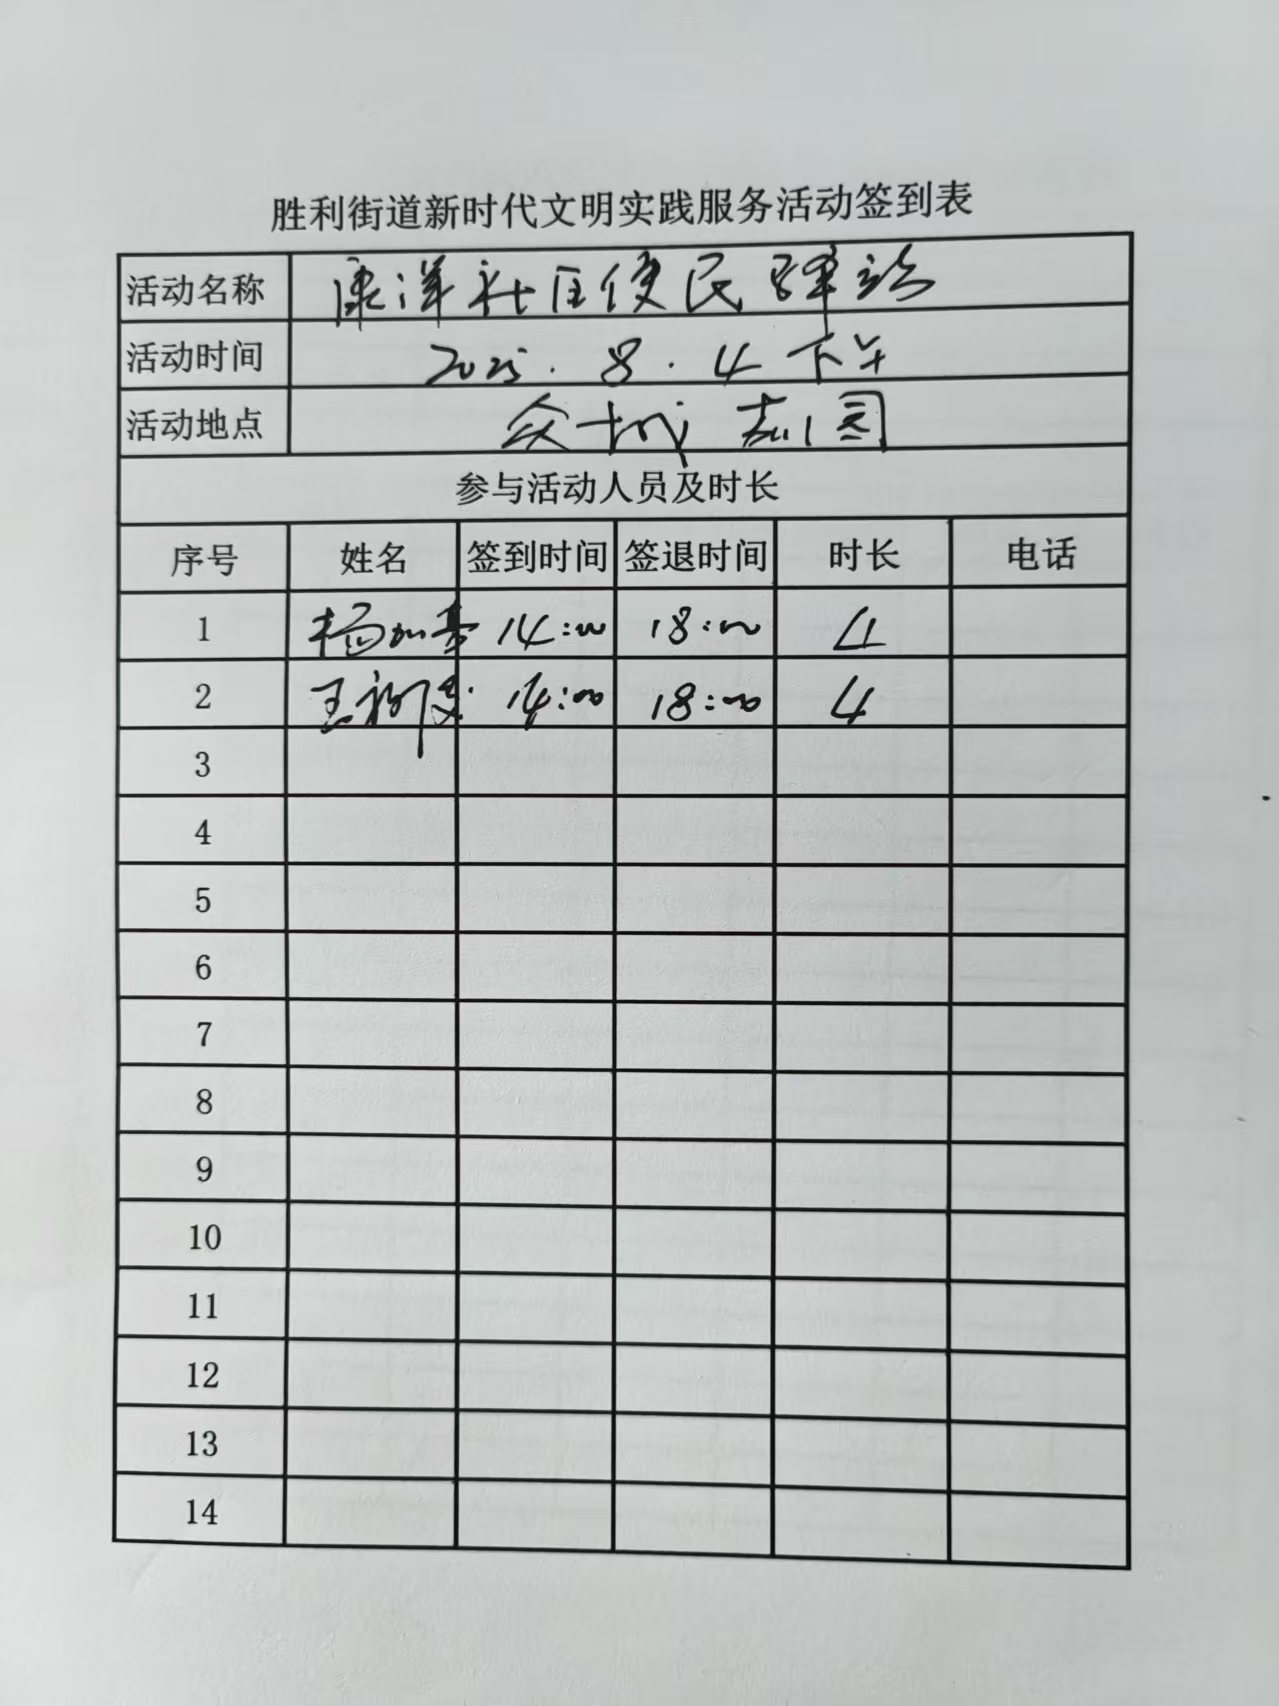 胜利街道新时代文明实践服务活动签到表
活动名称 康洋社区便民驿站
活动时间 2025.8.4下午
活动地点 众城
参与活动人员及时长
序号 姓名 签到时间 签退时间 时长 电话
1 杨 14:00 18:00 4
2 王 14:00 18:00 4
3
4
5
6
7
8
9
10
11
12
13
14